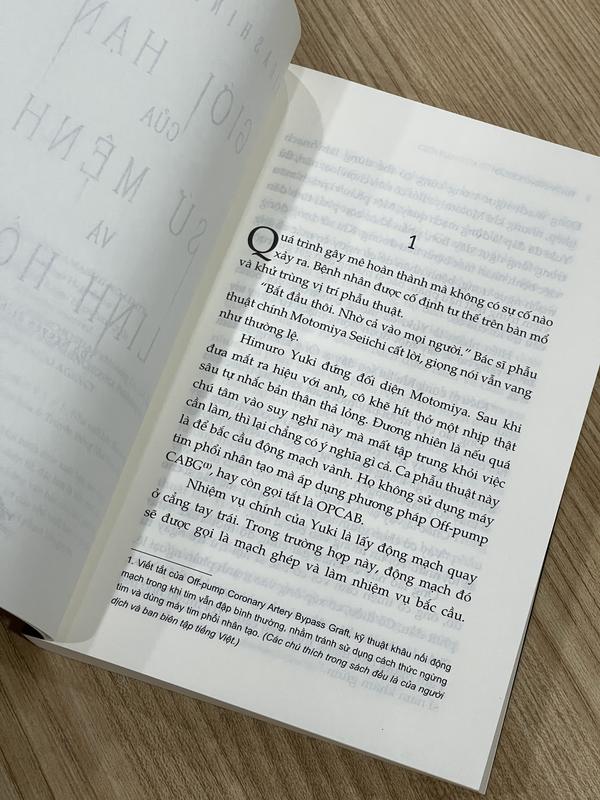 GIỚI HẠN
CỦA
SỨ MỆNH
VÀ
LINH HỒ
1
Quá trình gây mê hoàn thành mà không có sự cố nào
xảy ra. Bệnh nhân được cố định tư thế trên bàn mổ
và khử trùng vị trí phẫu thuật.
“Bắt đầu thôi. Nhờ cả vào mọi người.” Bác sĩ phẫu
thuật chính Motomiya Seiichi cất lời, giọng nói vẫn vang
như thường lệ.
Himuro Yuki đứng đối diện Motomiya. Sau khi
đưa mắt ra hiệu với anh, cô khẽ hít thở một nhịp thật
sâu tự nhắc bản thân thả lỏng. Đương nhiên là nếu quá
chú tâm vào suy nghĩ này mà mất tập trung khỏi việc
cần làm, thì lại chẳng có ý nghĩa gì cả. Ca phẫu thuật này
là để bắc cầu động mạch vành. Họ không sử dụng máy
tim phổi nhân tạo mà áp dụng phương pháp Off-pump
CABG⁽¹⁾, hay còn gọi tắt là OPCAB.
Nhiệm vụ chính của Yuki là lấy động mạch quay
ở cẳng tay trái. Trong trường hợp này, động mạch đó
sẽ được gọi là mạch ghép và làm nhiệm vụ bắc cầu.
1. Viết tắt của Off-pump Coronary Artery Bypass Graft, kỹ thuật khâu nối động
mạch trong khi tim vẫn đập bình thường, nhằm tránh sử dụng cách thức ngừng
tim và dùng máy tim phổi nhân tạo. (Các chú thích trong sách đều là của người
dịch và ban biên tập tiếng Việt.)